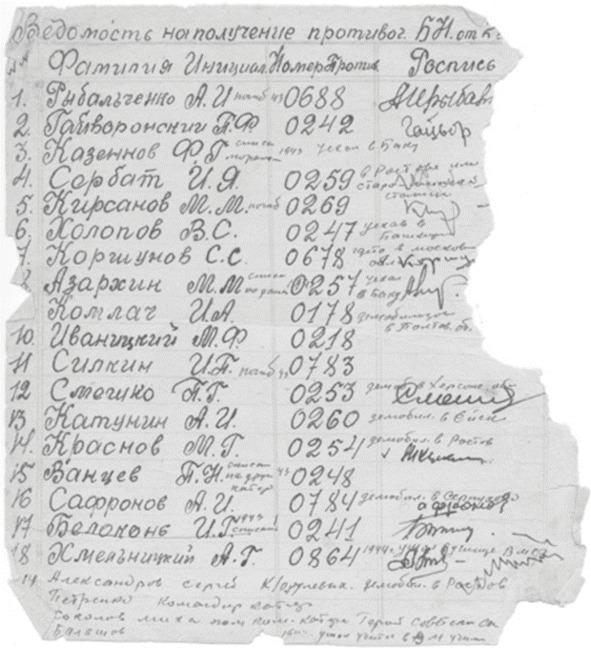 Ведомость на получение противог. БН. от к
Фамилия Инициал. Номер Против. Роспись
1. Рыбальченко А.И погиб 43 0688 А Рыбал
2. Гайворонский П.Ф 0242 Гайвор
3. Казеннов Ф.Г списан 1943 уехал в Баку
4. Сербат И.Я. 0259 в Рост или
5. Кирсанов М.М. погиб 0269
6. Холопов В.С. 0247 уехал в
7. Коршунов С.С. 0678 где то в москов
Азархин М.М списан 0257 уехал в Баку
Комлач И.А. 0178 демобилизов в Полтав. об.
10. Иваницкий М.Ф 0218
11 Силкин И.П. погиб 43 0783
12 Смешко П.Г. 0253 демоб. в Херсонс. обл
13 Катунин А.И. 0260 демобил. в Ейск
14. Краснов М.Г. 0254 демобил. в Ростов
15 Ванцев П.Н. списан на друг катер 43 0248
16 Сафронов А.И. 0784 демобил. в Серпухов
17 Белоконь И.Г 1943 списан 0241
18 Хмельницкий А.Г. 0864 1944 училище ВМС
19 Александров сергей демобил. в Ростов
Петренко Командир катер
Соколов миха пом ком. катера Герой Советск Со
Балашов уехал учится в В М учил